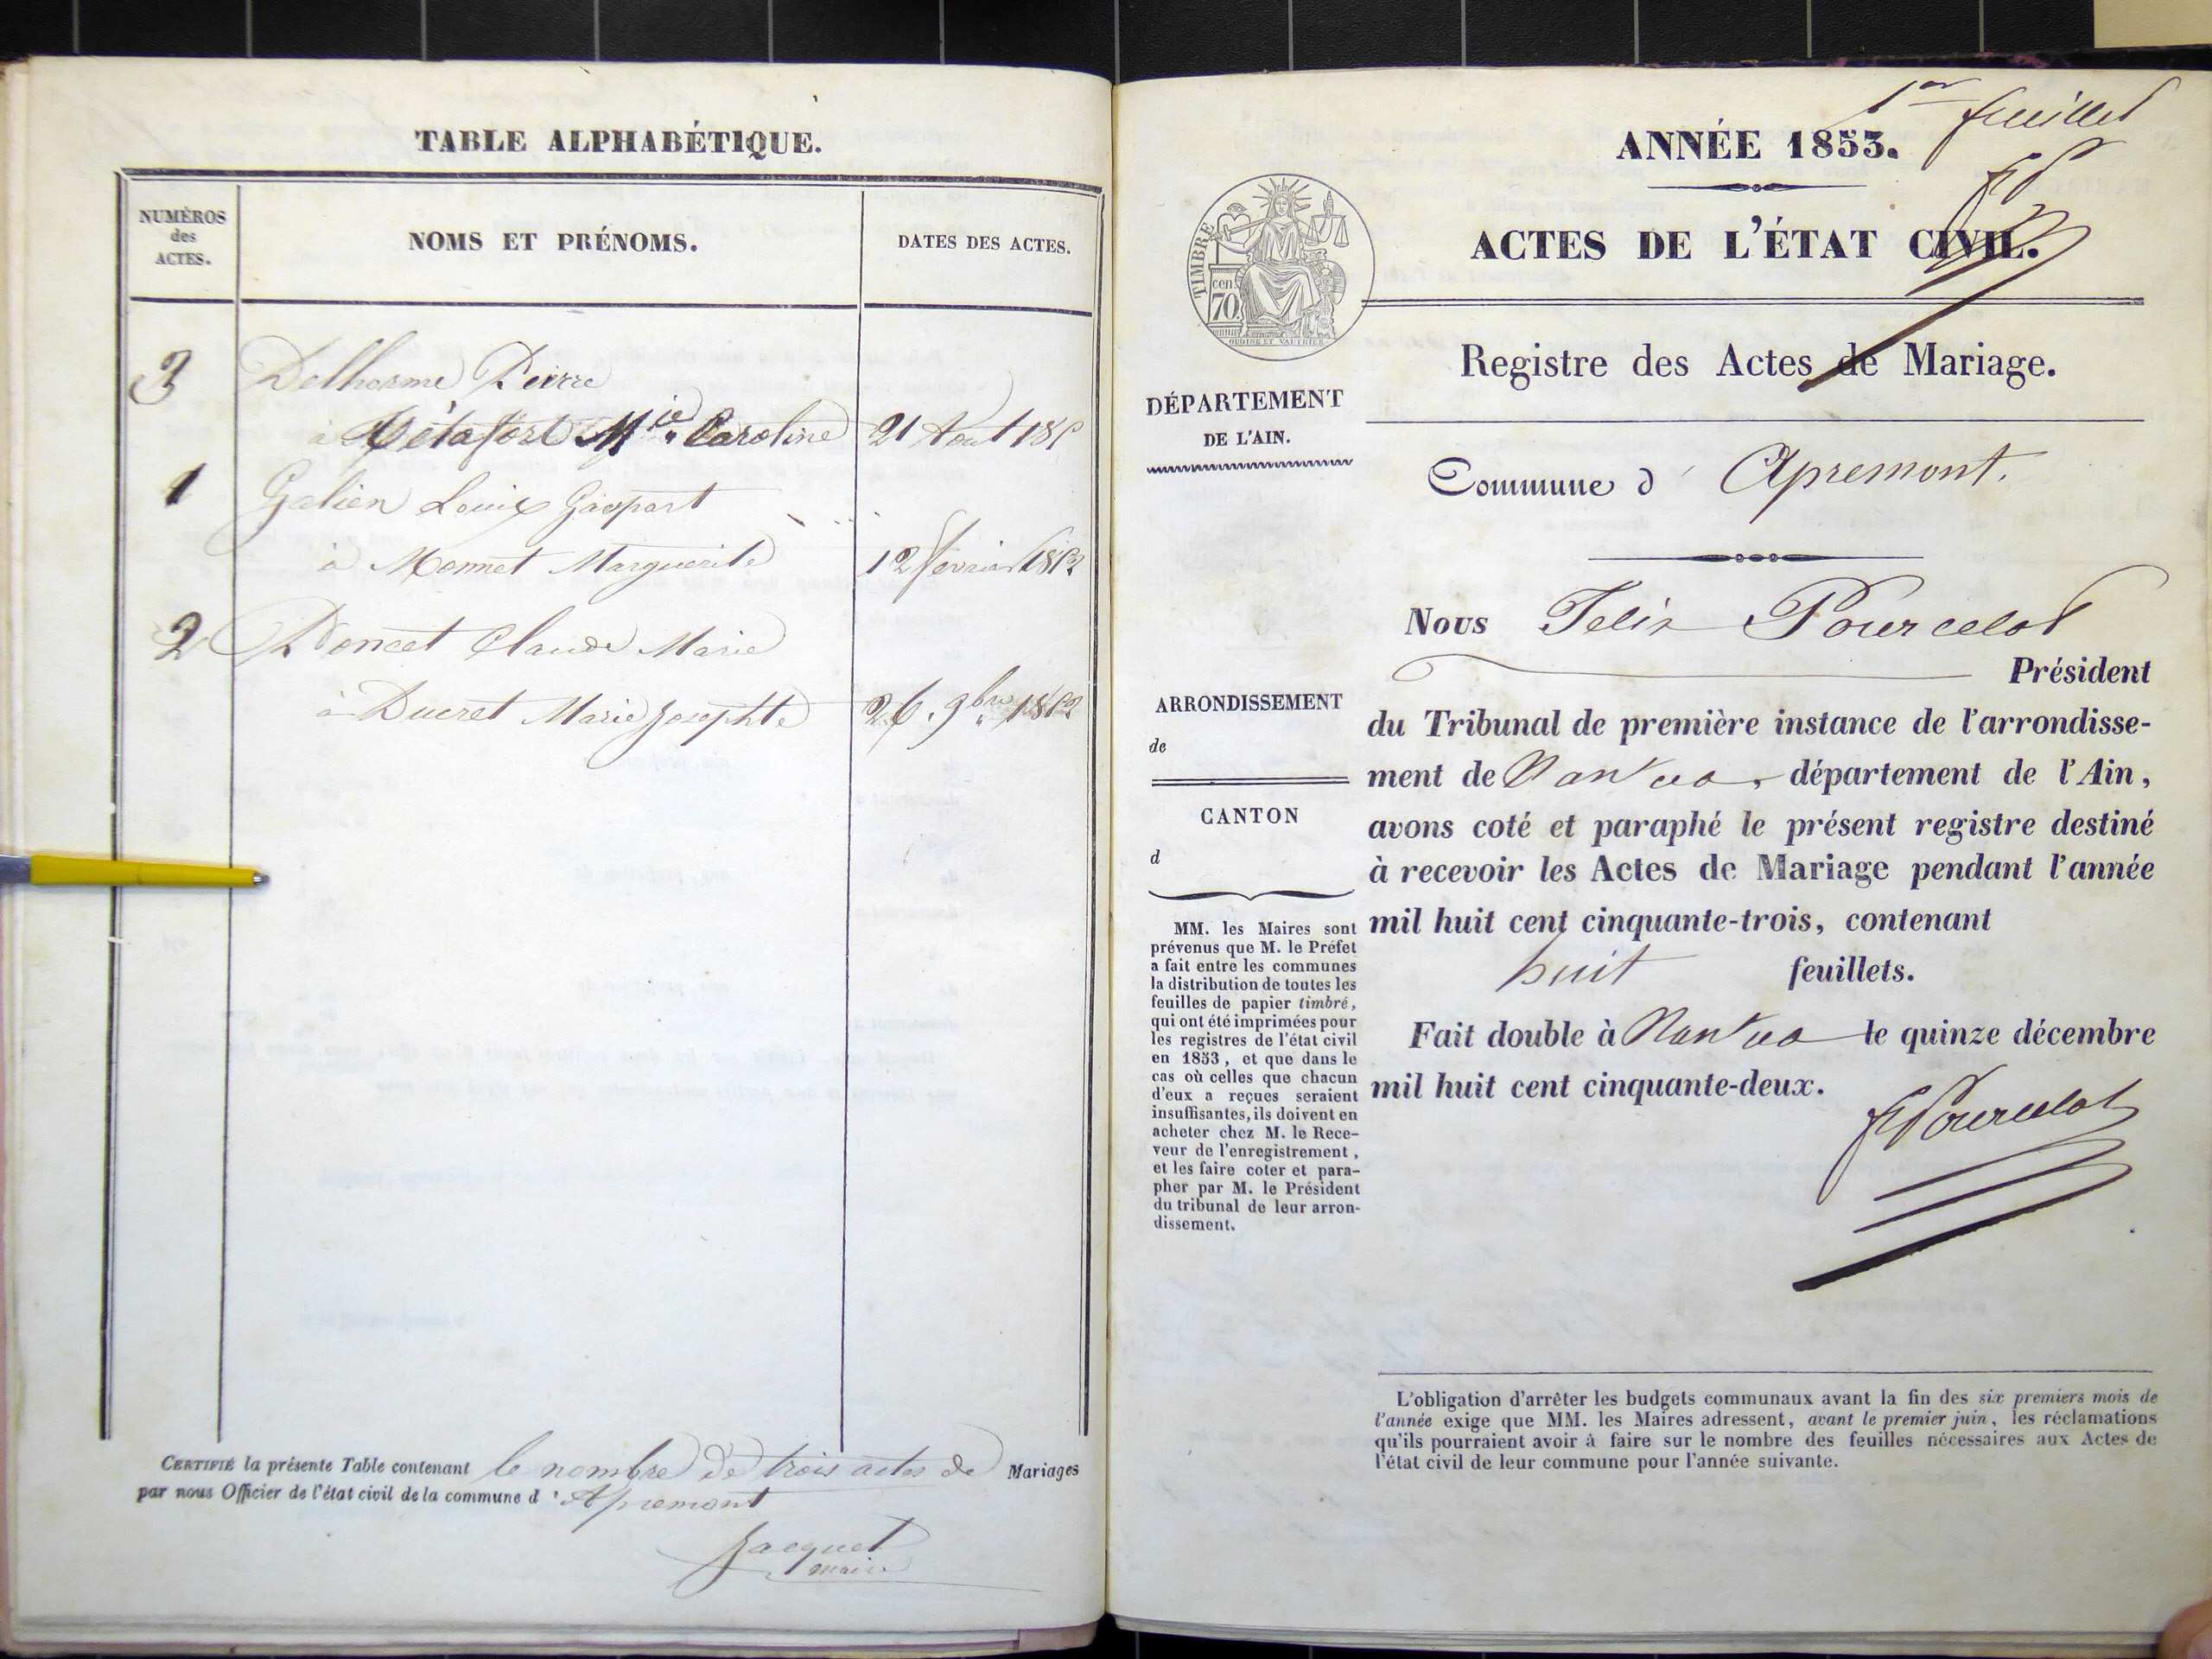 TABLE ALPHABÉTIQUE.
NUMÉROS des ACTES.
NOMS ET PRÉNOMS.
DATES DES ACTES.
3 Delhorme Pierre
à Caroline 21 Aout 185
1 Galien Louis Gaspart
à Monnet Marguerite 12 février 1852
2 Poncet Claude Marie
à Ducret Marie Josephte 26. 9bre 1852
CERTIFIÉ la présente Table contenant le nombre de trois actes de Mariages
par nous Officier de l'état civil de la commune d'Apremont
Jacquet
maire
1er feuillet
ANNÉE 1853.
ACTES DE L'ÉTAT CIVIL.
TIMBRE
cen. 70.
OUDINE ET VAUTHIER
Registre des Actes de Mariage.
DÉPARTEMENT
DE L'AIN.
Commune d' Apremont.
Nous Felix Pourcelot
Président
du Tribunal de première instance de l'arrondisse-
ment de Nantua, département de l'Ain,
avons coté et paraphé le présent registre destiné
à recevoir les Actes de Mariage pendant l'année
mil huit cent cinquante-trois, contenant
huit feuillets.
Fait double à Nantua le quinze décembre
mil huit cent cinquante-deux.
FPourcelot
ARRONDISSEMENT
de
CANTON
d
MM. les Maires sont
prévenus que M. le Préfet
a fait entre les communes
la distribution de toutes les
feuilles de papier timbré,
qui ont été imprimées pour
les registres de l'état civil
en 1853, et que dans le
cas où celles que chacun
d'eux a reçues seraient
insuffisantes, ils doivent en
acheter chez M. le Rece-
veur de l'enregistrement,
et les faire coter et para-
pher par M. le Président
du tribunal de leur arron-
dissement.
L'obligation d'arrêter les budgets communaux avant la fin des six premiers mois de
l'année exige que MM. les Maires adressent, avant le premier juin, les réclamations
qu'ils pourraient avoir à faire sur le nombre des feuilles nécessaires aux Actes de
l'état civil de leur commune pour l'année suivante.